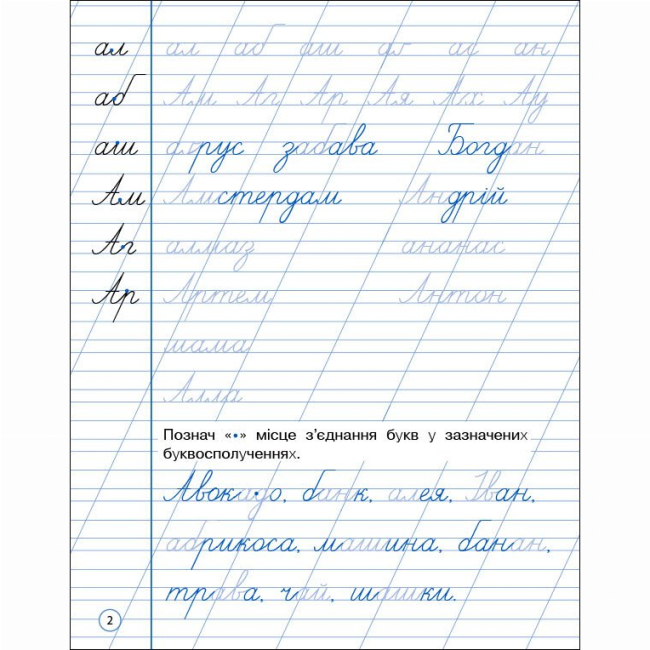 ал ал аб аш аг ас ан
аб Ам Аг Ар Ая Ах Ау
аш агрус забава Богдан
Ам Амстердам Андрій
Аг алмаз ананас
Ар Артем Антон
Алла
Познач «•» місце з'єднання букв у зазначених
буквосполученнях.
Авокадо, банк, алея, Іван,
абрикоса, машина, банан,
трава, чай, шашки.
2